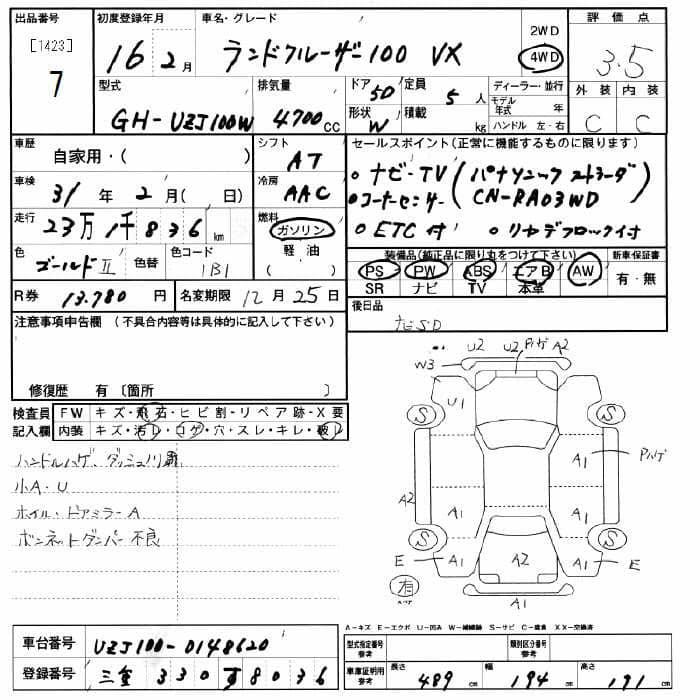 出品番号 初度登録年月 車名・グレード 評価点
[1423] 16年 2月 ランドクルーザー100 VX 2WD 4WD 3.5
7
型式 排気量 ドア 5D 定員 ディーラー・並行 外装 内装
GH-UZJ100W 4700cc 形状 W 積載 5人 kg モデル年式 年 ハンドル 左・右 C C
車歴 シフト セールスポイント(正常に機能するものに限ります)
自家用・( ) AT ・ナビ・TV(パナソニック ストラーダ
車検 冷房 ・コーナーセンサー CN-RA03WD)
31年 2月( 日) AAC
走行 燃料 ・ETC付 ・リヤデフロック付
23万1千836km ガソリン
色 色替 色コード 軽・油 装備品(純正品に限り丸をつけて下さい) 新車保証書
ゴールドII 1B1 ( ) PS PW ABS エアB AW 有・無
SR ナビ TV 本革
R券 13.780円 名変期限 12月25日 後日品
注意事項申告欄 (不具合内容等は具体的に記入して下さい) ナビSD
U2 U2 Pハゲ A2
W3
修復歴 有 〔箇所 〕
検査員 FW キズ・飛石・ヒビ割・リペア跡・X要 S U1 S
記入欄 内装 キズ・汚レ・コゲ・穴・スレ・キレ・破レ
ハンドルハゲ、ダッシュ
A1 Pハゲ
小A・U
A2
ホイル・ドアミラーA A1 A1
ボンネットダンパー不良 S S
E A1 A2 A1 E
有
A1
A-キズ E-エクボ U-凹み W-補修跡 S-サビ C-腐食 XX-交換済
車台番号 UZJ100-0148620 型式指定番号 参考 類別区分番号 参考
登録番号 三重 330 す 8036 車庫証明用 参考 長さ 489cm 幅 194cm 高さ 191cm